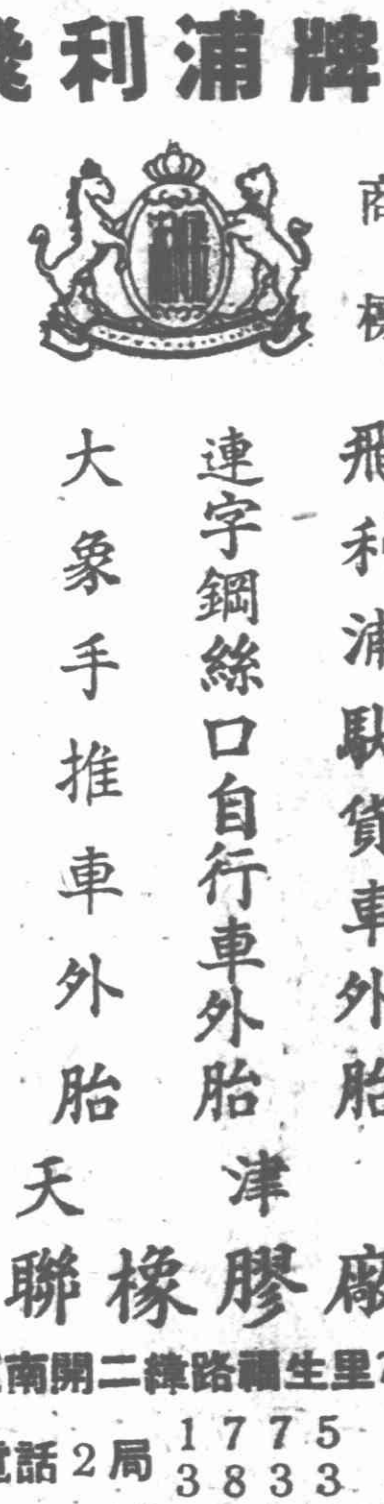 飛利浦牌
商標
飛利浦馱貨車外胎
連字鋼絲口自行車外胎
大象手推車外胎
天津
聯橡膠廠
南開二緯路福生里
電話2局 1775
3833